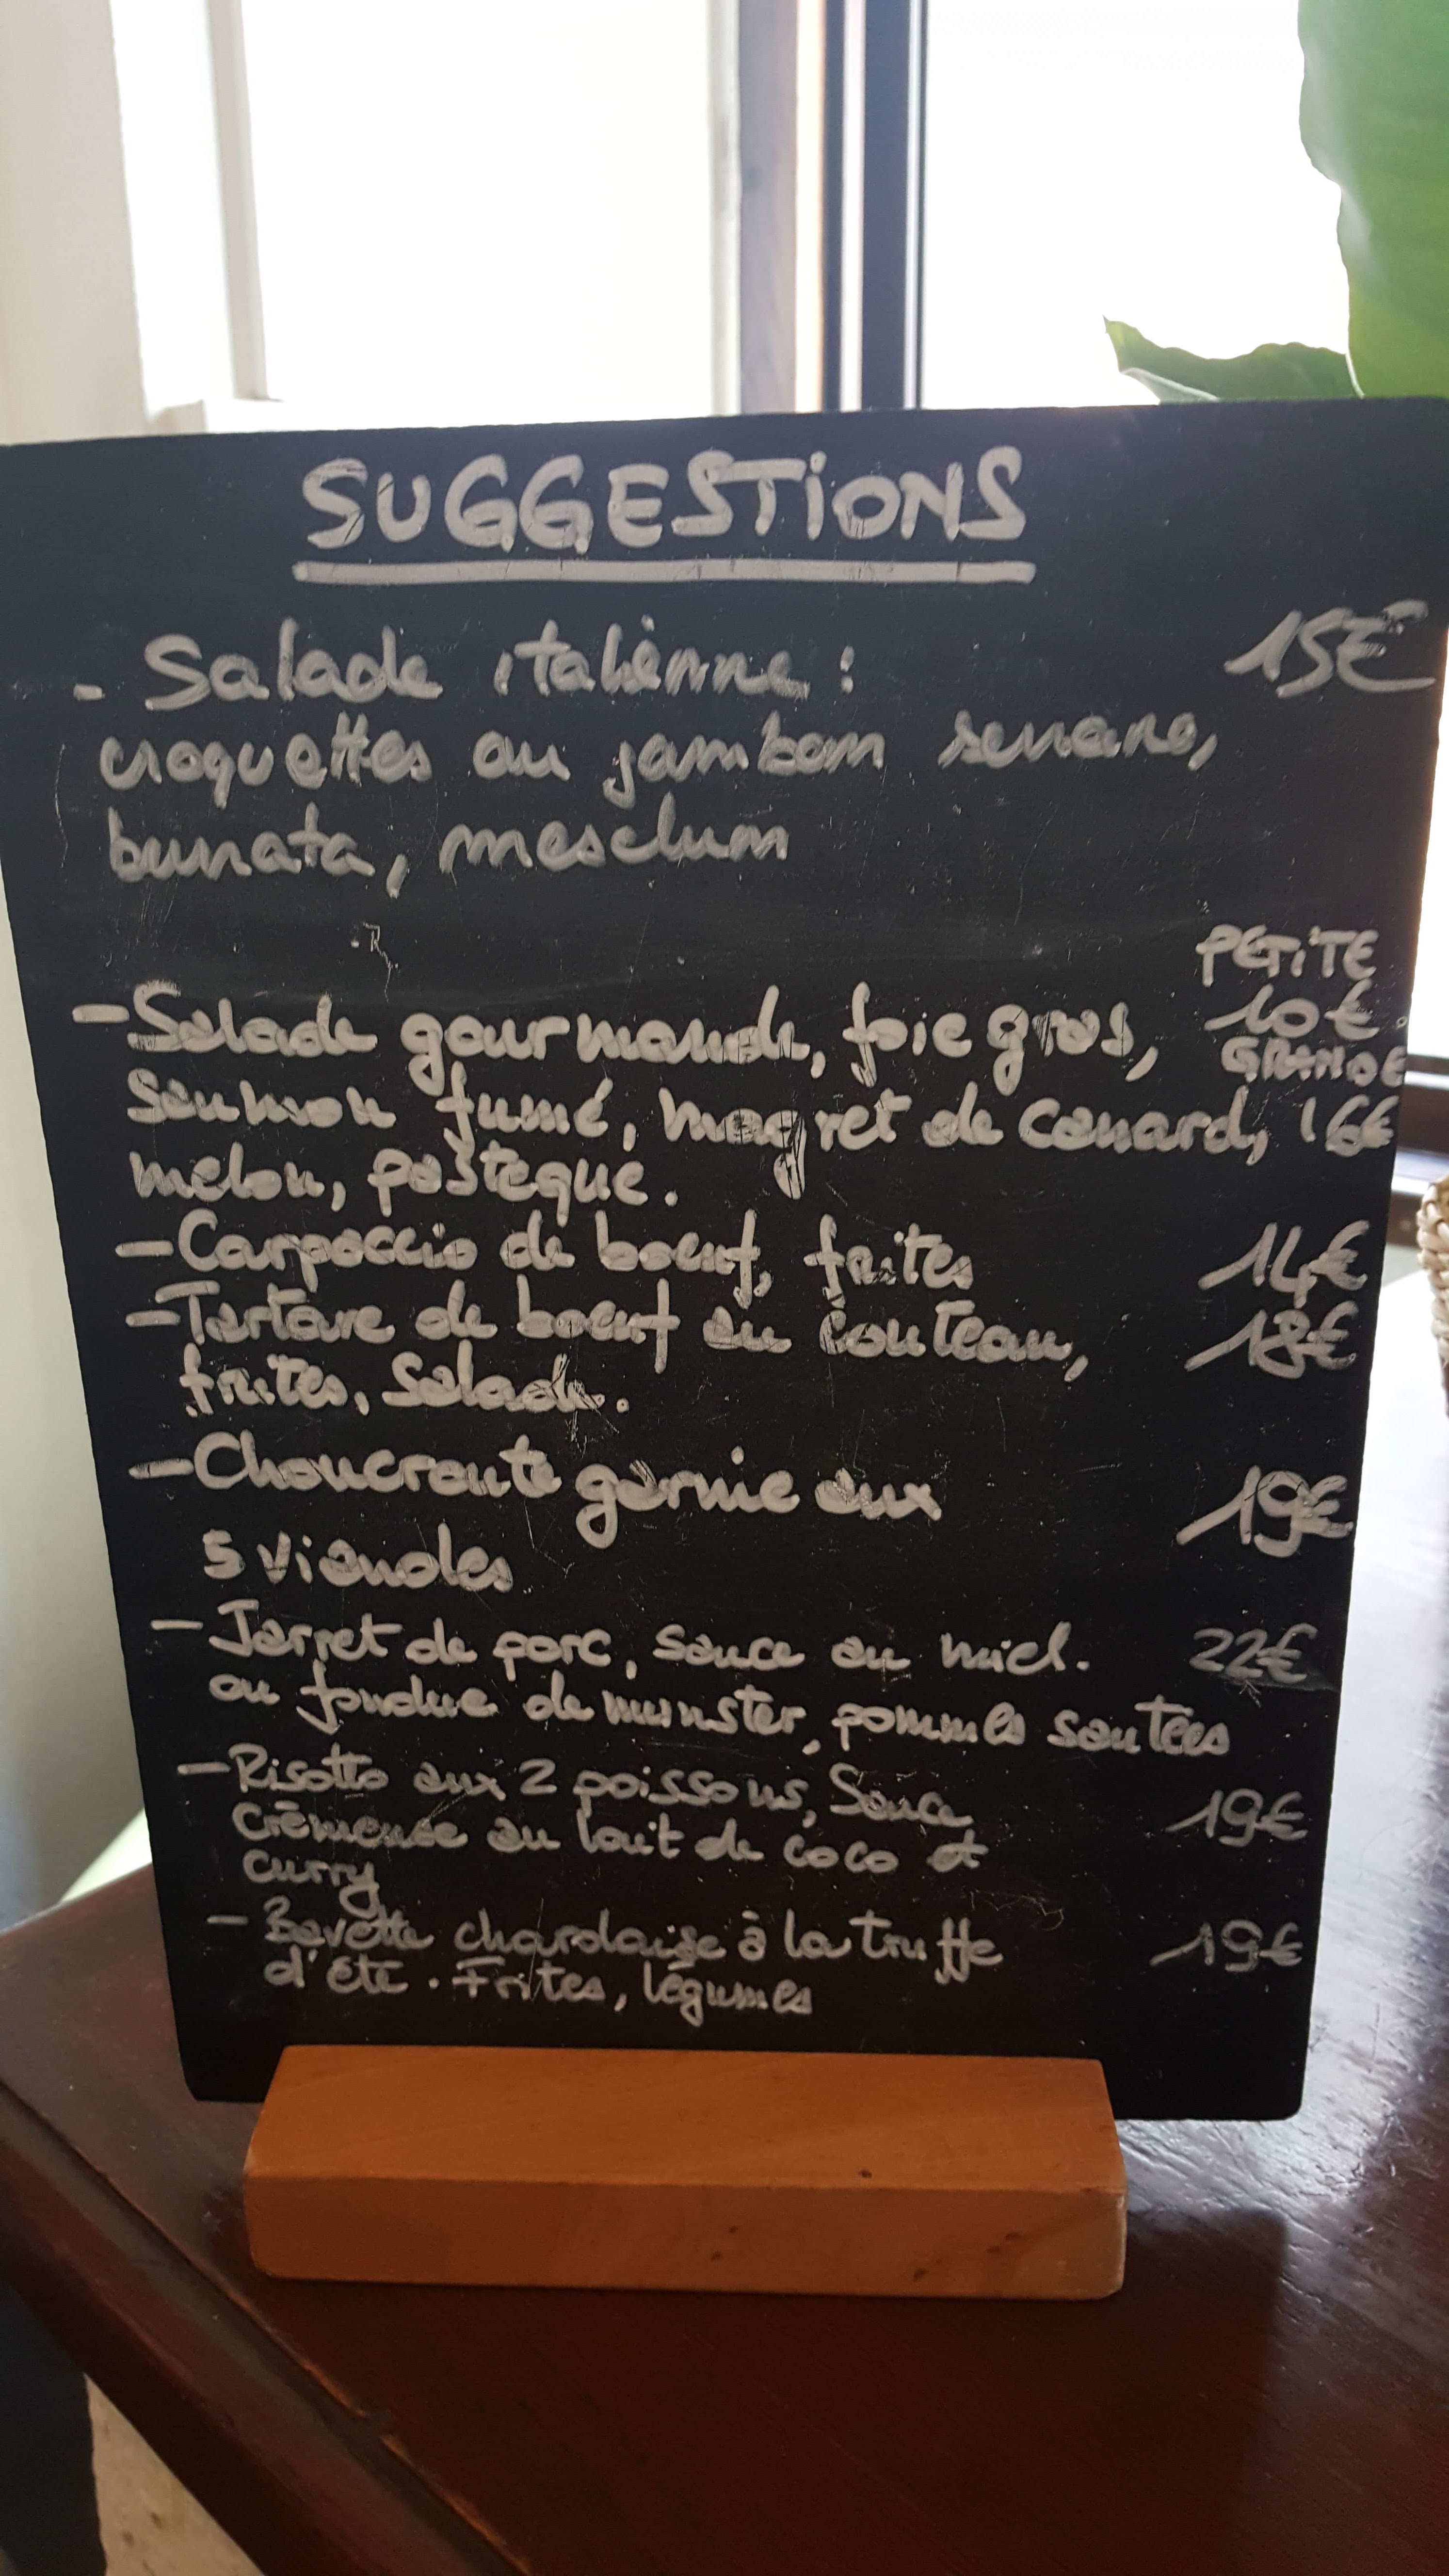 SUGGESTIONS
- Salade italienne : 15€
croquettes au jambon serrano,
burrata, mesclum
PETITE
- Salade gourmande, foie gras, 10€
GRANDE
Saumon fumé, magret de canard, 16€
melon, pastèque.
- Carpaccio de boeuf, frites 14€
- Tartare de boeuf au couteau, 18€
frites, Salade.
- Choucroute garnie aux 19€
5 viandes
- Jarret de porc, sauce au miel. 22€
ou fondue de munster, pommes sautées
- Risotto aux 2 poissons, Sauce 19€
Crémeuse au lait de coco et
curry
- Bavette charolaise à la truffe 19€
d'été. Frites, légumes